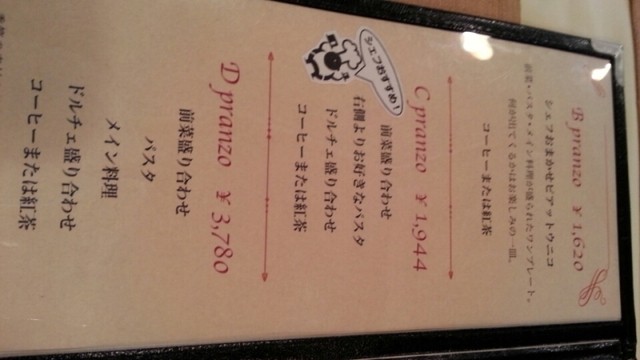 B pranzo ￥1,620
シェフおまかせピアットウニコ
前菜・パスタ・メイン料理が盛られたワンプレート。
何が出てくるかはお楽しみの一皿。
コーヒーまたは紅茶
シェフおすすめ!
C pranzo ￥1,944
前菜盛り合わせ
右側よりお好きなパスタ
ドルチェ盛り合わせ
コーヒーまたは紅茶
D pranzo ￥3,780
前菜盛り合わせ
パスタ
メイン料理
ドルチェ盛り合わせ
コーヒーまたは紅茶